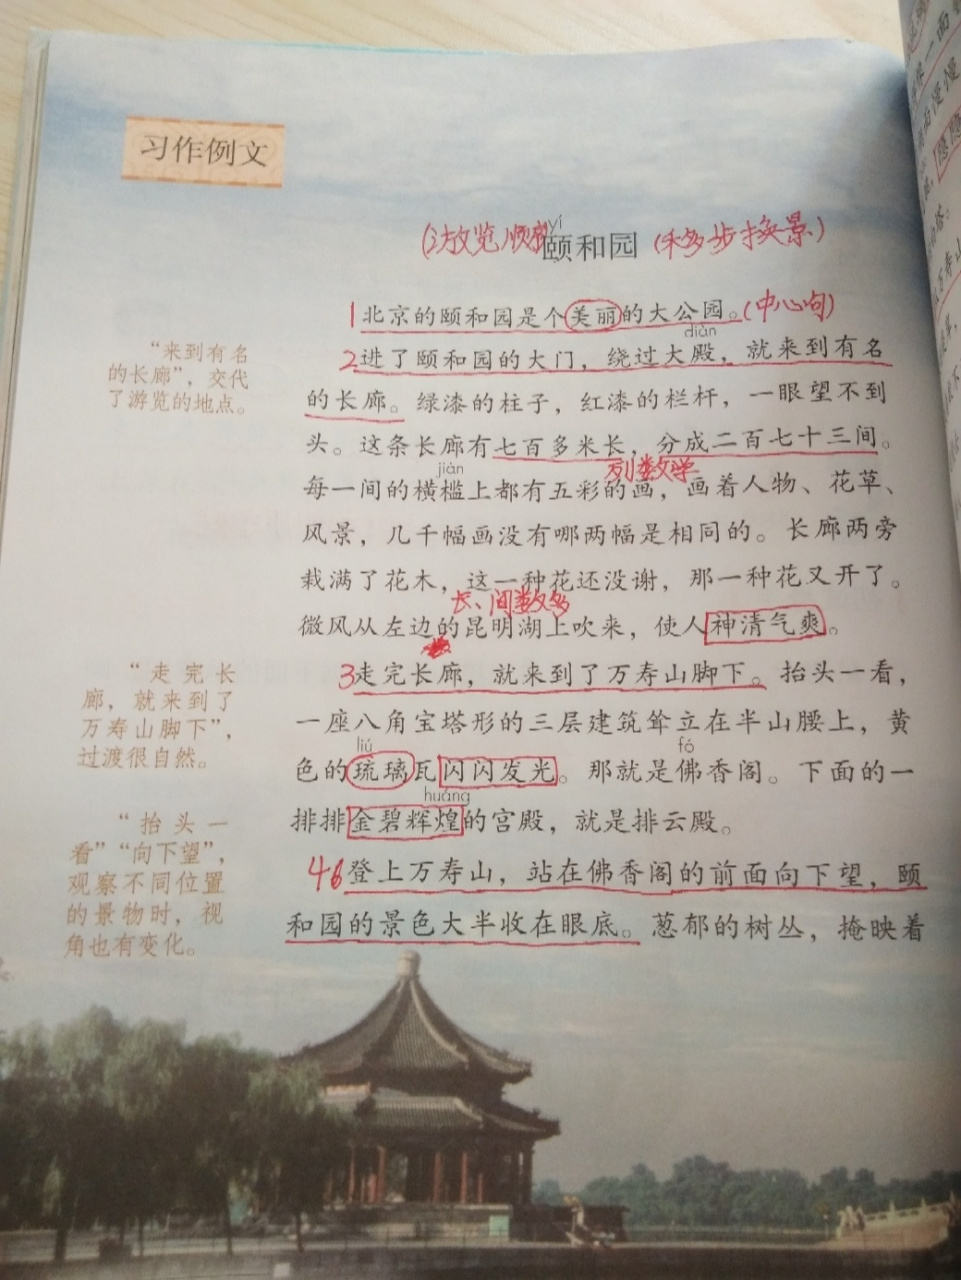 习作例文
yí
(游览顺序) 颐和园 (移步换景)
1 北京的颐和园是个美丽的大公园。(中心句)
diàn
2 进了颐和园的大门，绕过大殿，就来到有名
的长廊。绿漆的柱子，红漆的栏杆，一眼望不到
头。这条长廊有七百多米长，分成二百七十三间。
jiàn
列数字
每一间的横槛上都有五彩的画，画着人物、花草、
风景，几千幅画没有哪两幅是相同的。长廊两旁
栽满了花木，这一种花还没谢，那一种花又开了。
长、间数多
微风从左边的昆明湖上吹来，使人神清气爽。
3 走完长廊，就来到了万寿山脚下。抬头一看，
一座八角宝塔形的三层建筑耸立在半山腰上，黄
liú fó
色的琉璃瓦闪闪发光。那就是佛香阁。下面的一
huáng
排排金碧辉煌的宫殿，就是排云殿。
4 登上万寿山，站在佛香阁的前面向下望，颐
和园的景色大半收在眼底。葱郁的树丛，掩映着
“来到有名
的长廊”，交代
了游览的地点。
“走完长
廊，就来到了
万寿山脚下”，
过渡很自然。
“抬头一
看”“向下望”，
观察不同位置
的景物时，视
角也有变化。